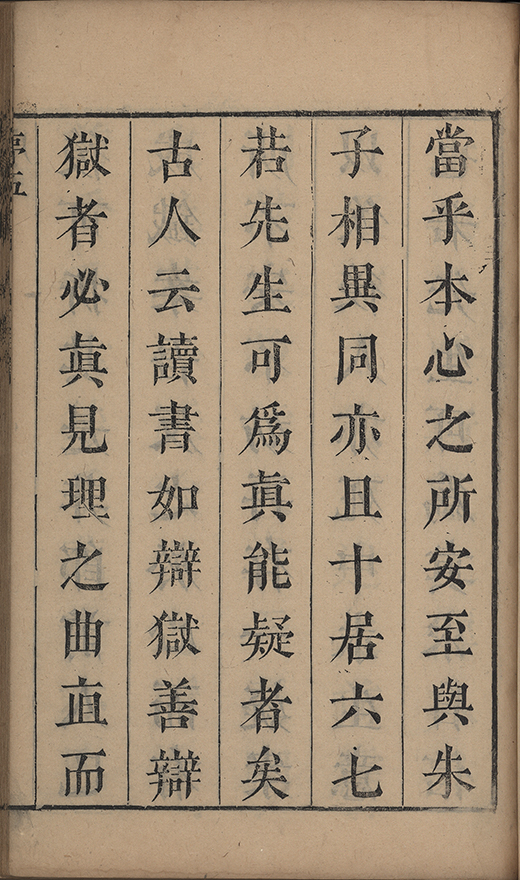 當乎本心之所安至與朱
子相異同亦且十居六七
若先生可爲眞能疑者矣
古人云讀書如辯獄善辯
獄者必眞見理之曲直而
序五